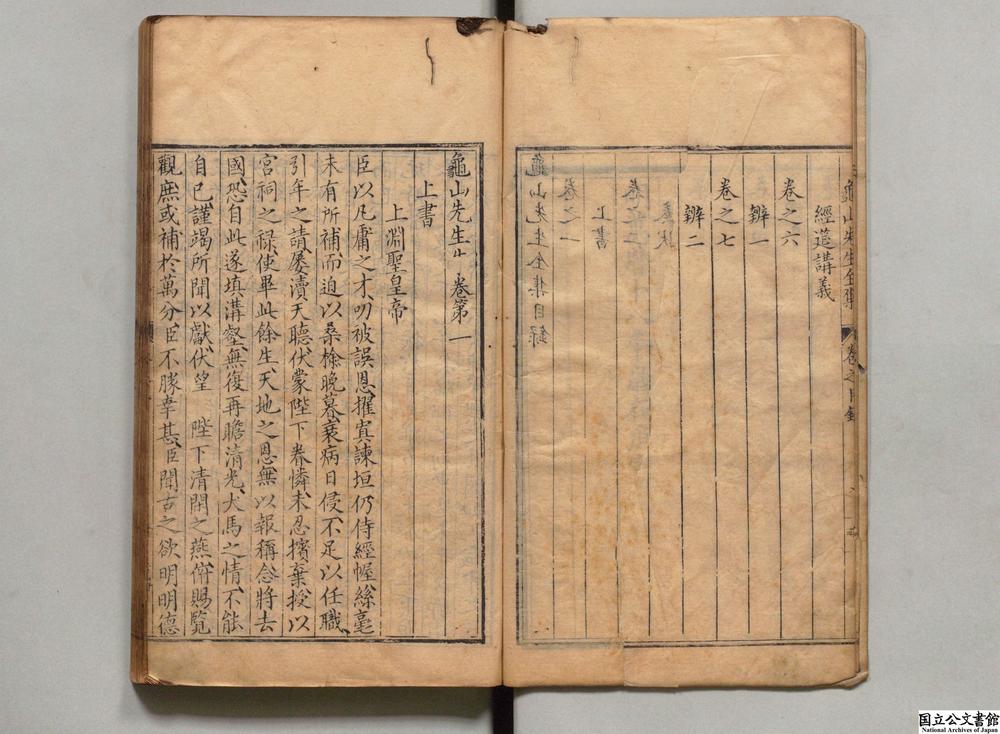 龜山先生全集 卷之目錄
經筵講義
卷之六
辨一
卷之七
辨二
龜山先生 卷第一
上書
上淵聖皇帝
臣以凡庸之才叨被誤恩擢寘諫垣仍侍經幄絲毫
未有所補而迫以桑榆晚暮衰病日侵不足以任職
引年之請屢瀆天聽伏蒙陛下眷憐未忍擯棄授以
宮祠之祿使畢此餘生天地之恩無以報稱念將去
國恐自此遂填溝壑無復再瞻清光犬馬之情不能
自已謹竭所聞以獻伏望 陛下清閒之燕俯賜覧
觀庶或補於萬分臣不勝幸甚臣聞古之欲明明德
国立公文書館
National Archives of Japan